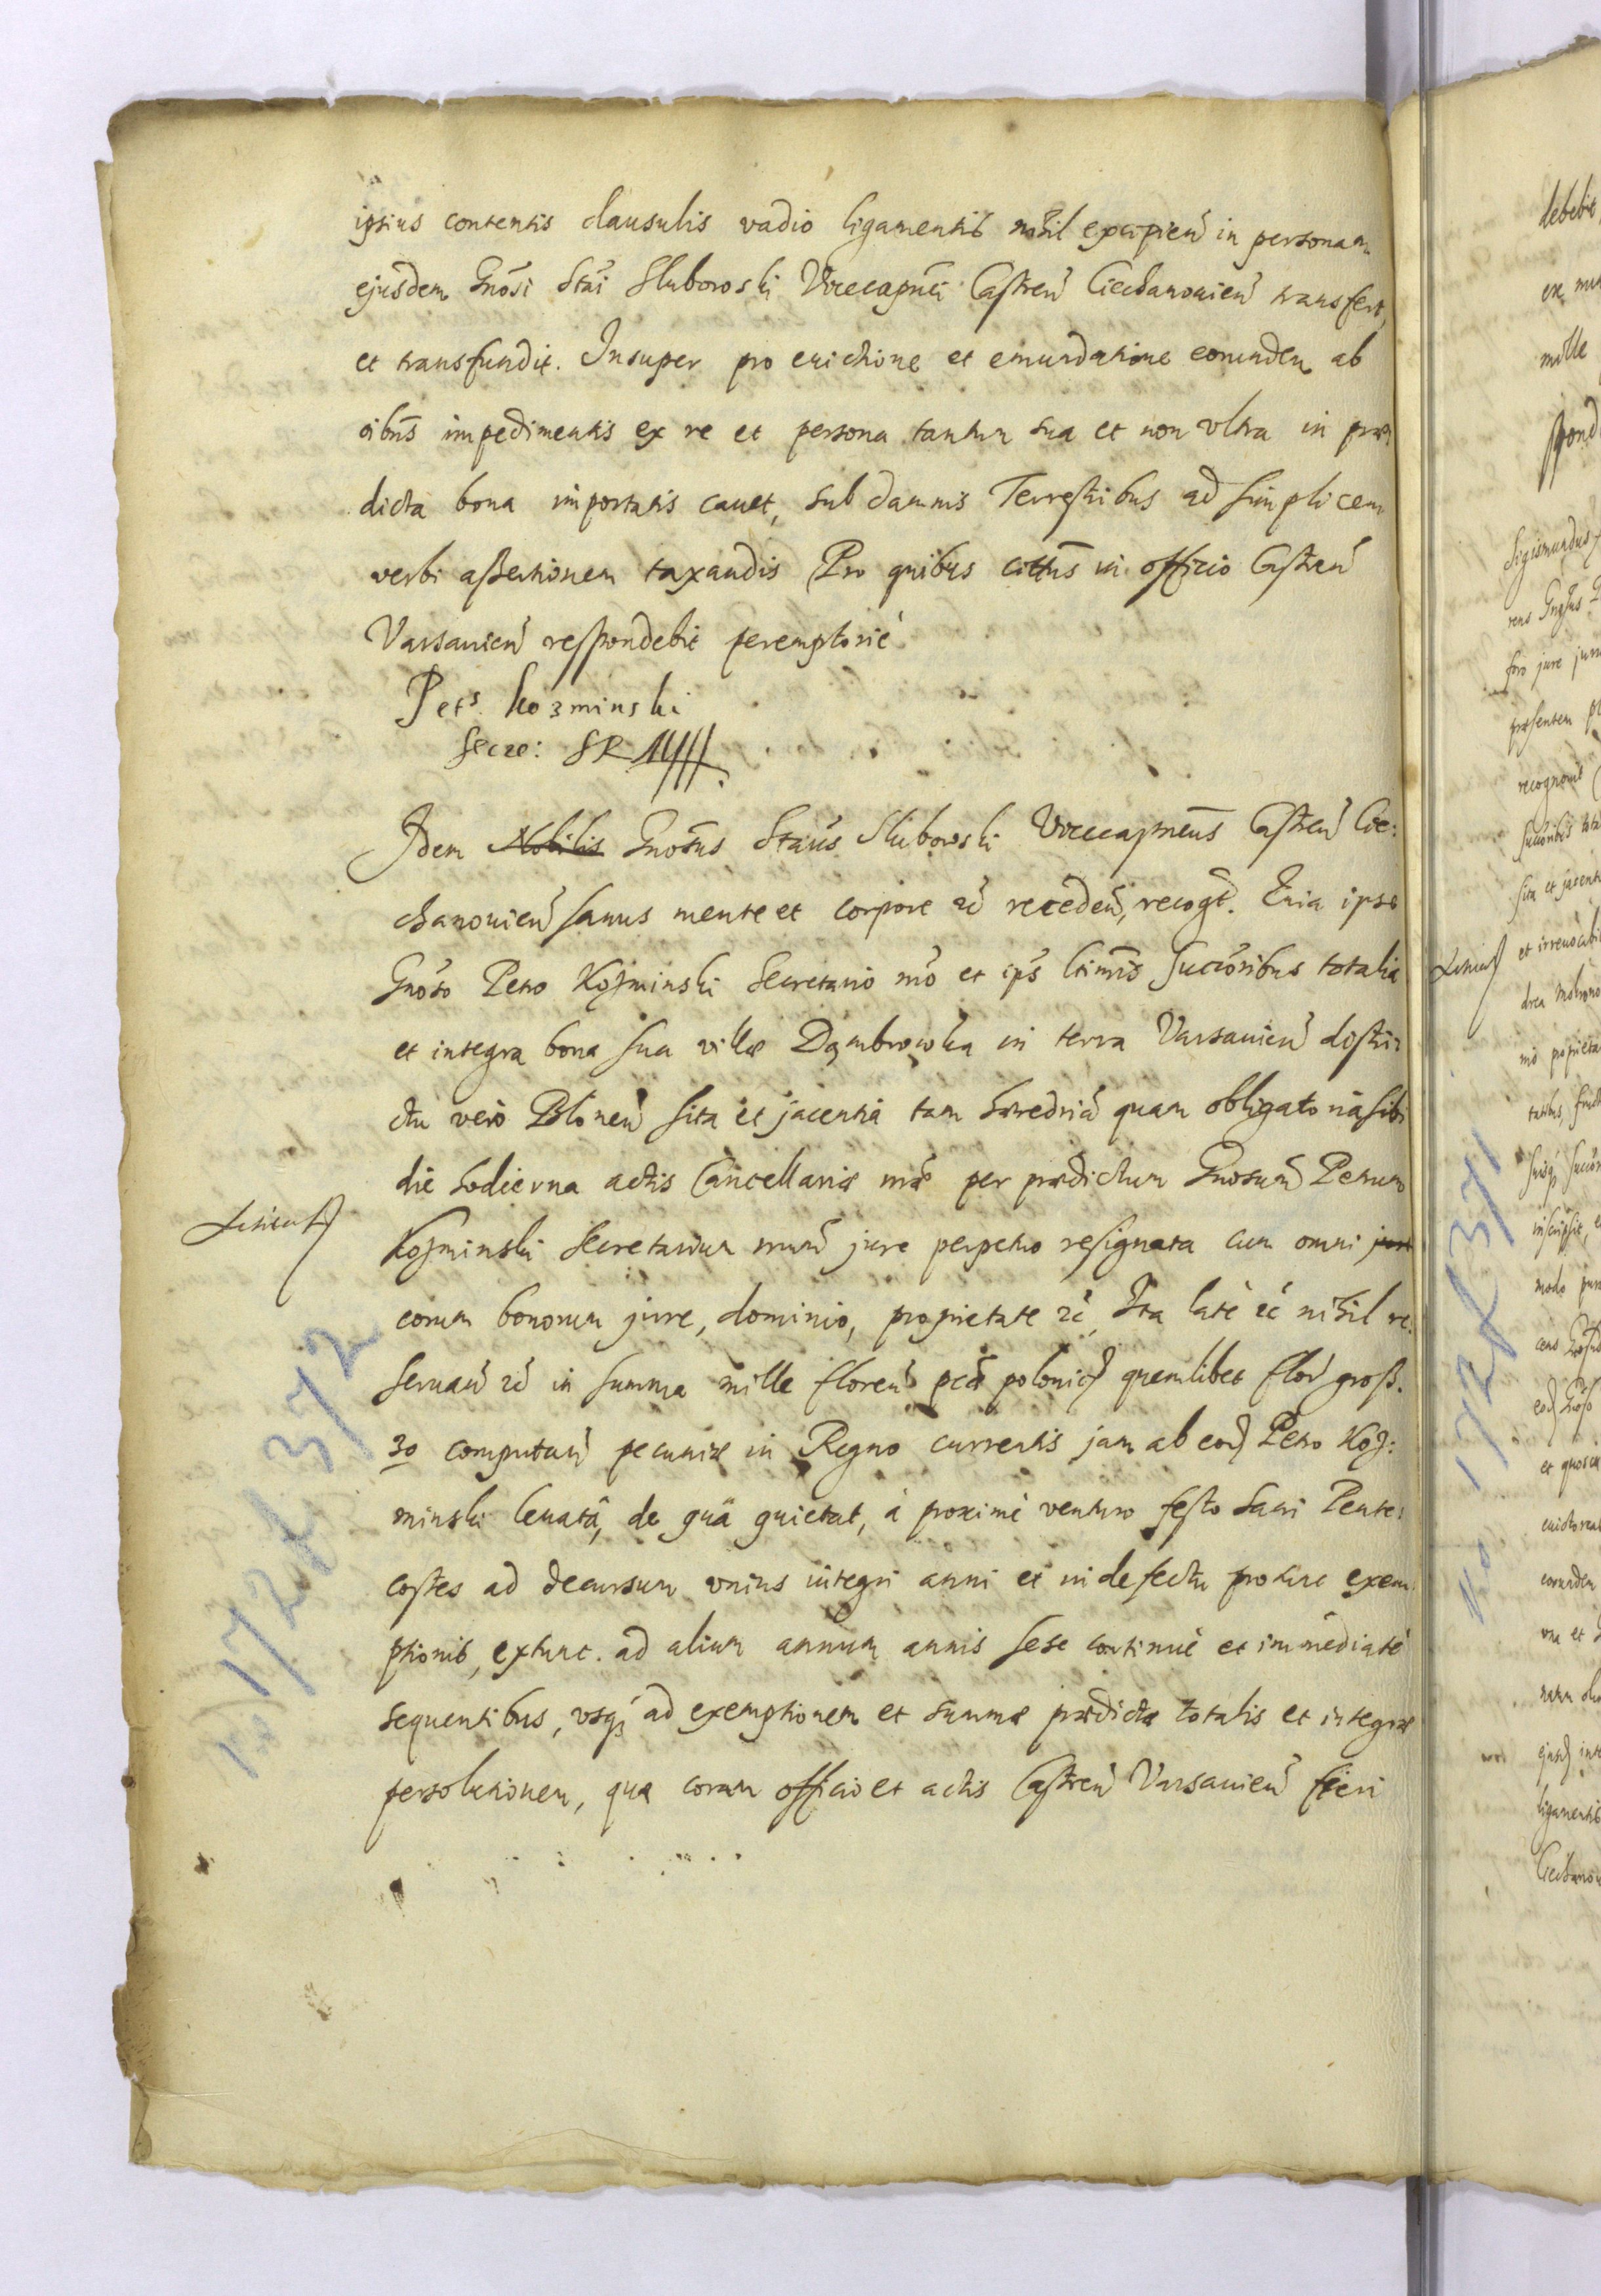 ipsius contentis clausulis vadio ligamentis nihil excipien in personam
ejusdem Gnosi Stai Sluborski Vicecapnei Castren Ciechanouien transfert,
et transfundit. Insuper pro euictione et emundatione eorunden ab
oibus impedimentis ex re et persona tantum sua et non vltra in præ
dicta bona importatis cauet, sub damnis Terrestribus ad simplicem
verbi assertionem taxandis Pro quibus cittus in officio Castren
Varsauien respondebit peremptorie
Pets. Kozminski
Secre: SR
Idem Nobilis Gnosus Staus Sluborski Vicecapneus Castren Cie:
chanouien sanus mente et corpore rc receden, recogt. Quia ipse
Gnoso Petro Kozminski Secretario mo et ips ltimis succoribus totalia
et integra bona sua villæ Dąmbrowka in terra Varsauien distri:
ctu vero Blonen sita et jacentia tam hæredria quam obligatoria sibi
die hodierna actis Cancellariæ mæ per prædictum Gnosum Petrum
Kozminski Secretarium mum jure perpetuo resignata cum omni jure
eorum bonorum jure, dominio, proprietate rc, Ita late rc nihil re:
seruan rc in summa mille floren pcæ polonic quemlibet flor gross.
30 computan pecuniæ in Regno currentis jam ab eod Petro Koz:
minski leuata, de qua quietat, a proxime venturo festo Sacri Pente:
costes ad decursum vnius integri anni et in defectu protunc exem:
ptionis, extunc. ad alium annum annis sese continue et immediate
sequentibus, vsq ad exemptionem et summæ prædictæ totalis et integræ
persolutionem, quæ coram officio et actis Castren Varsauien fieri
172 f 372
debebit
mille
spond
Sigismundus
foro jure
præsentem
recognouit
sita et jacent
et irreuocabi
inscripsit,
modo
et
eorundem
vna et
ligamentis
Ciechanou
172 f 371